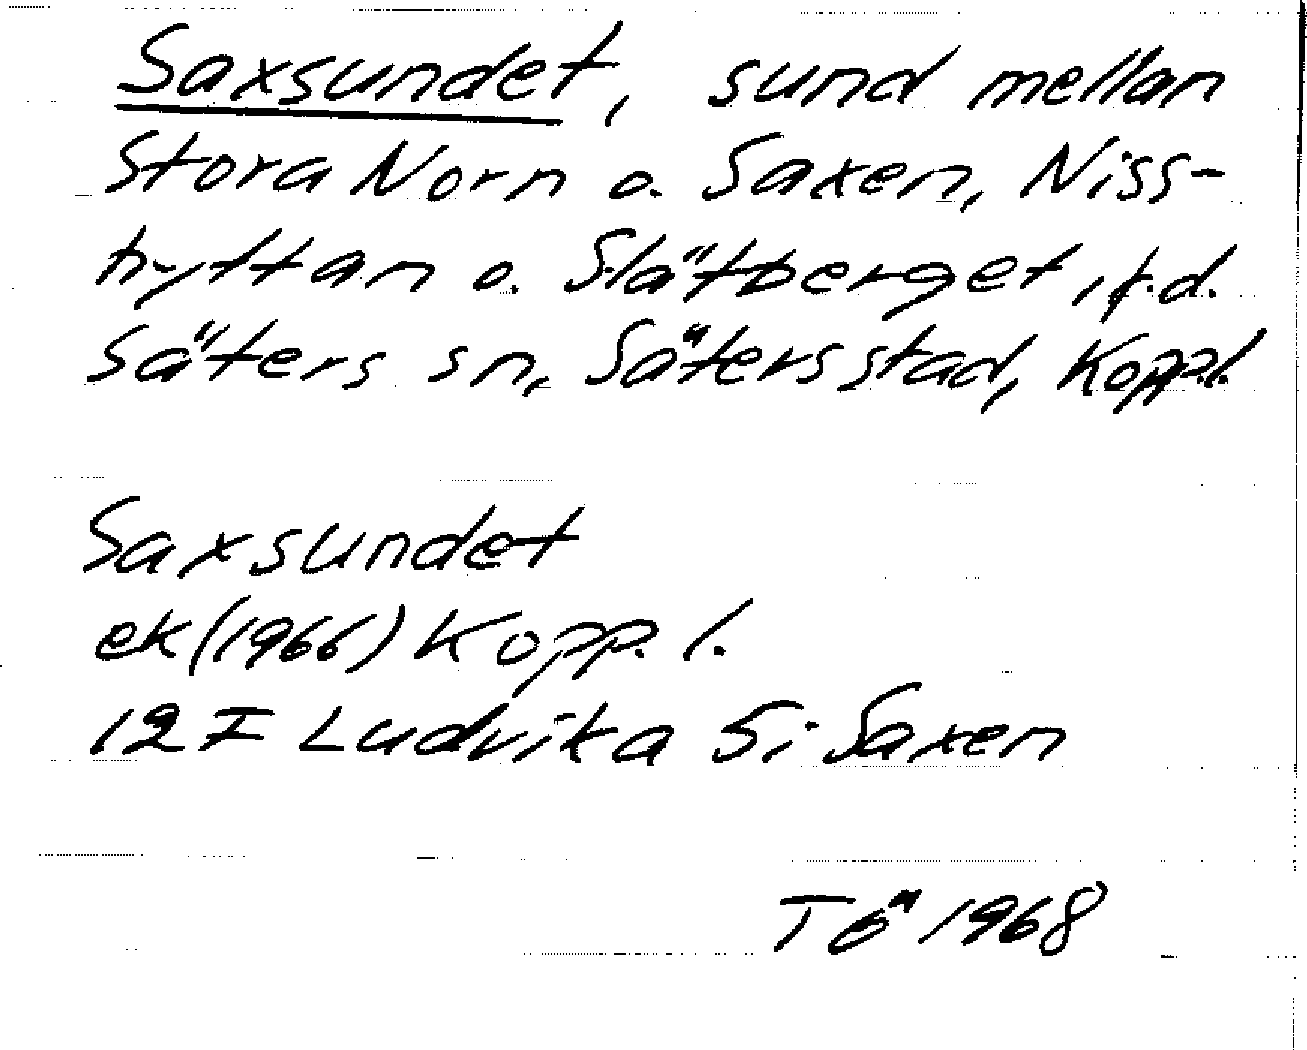 Saxsundet, sund mellan
Stora Norn o. Saxen, Niss-
hyttan o. Slätberget, f.d.
Säters sn, Säters stad, Kopp.l.
Saxsundet
ek (1966) Kopp. l.
12 F Ludvika Si Saxen
TÖ 1968